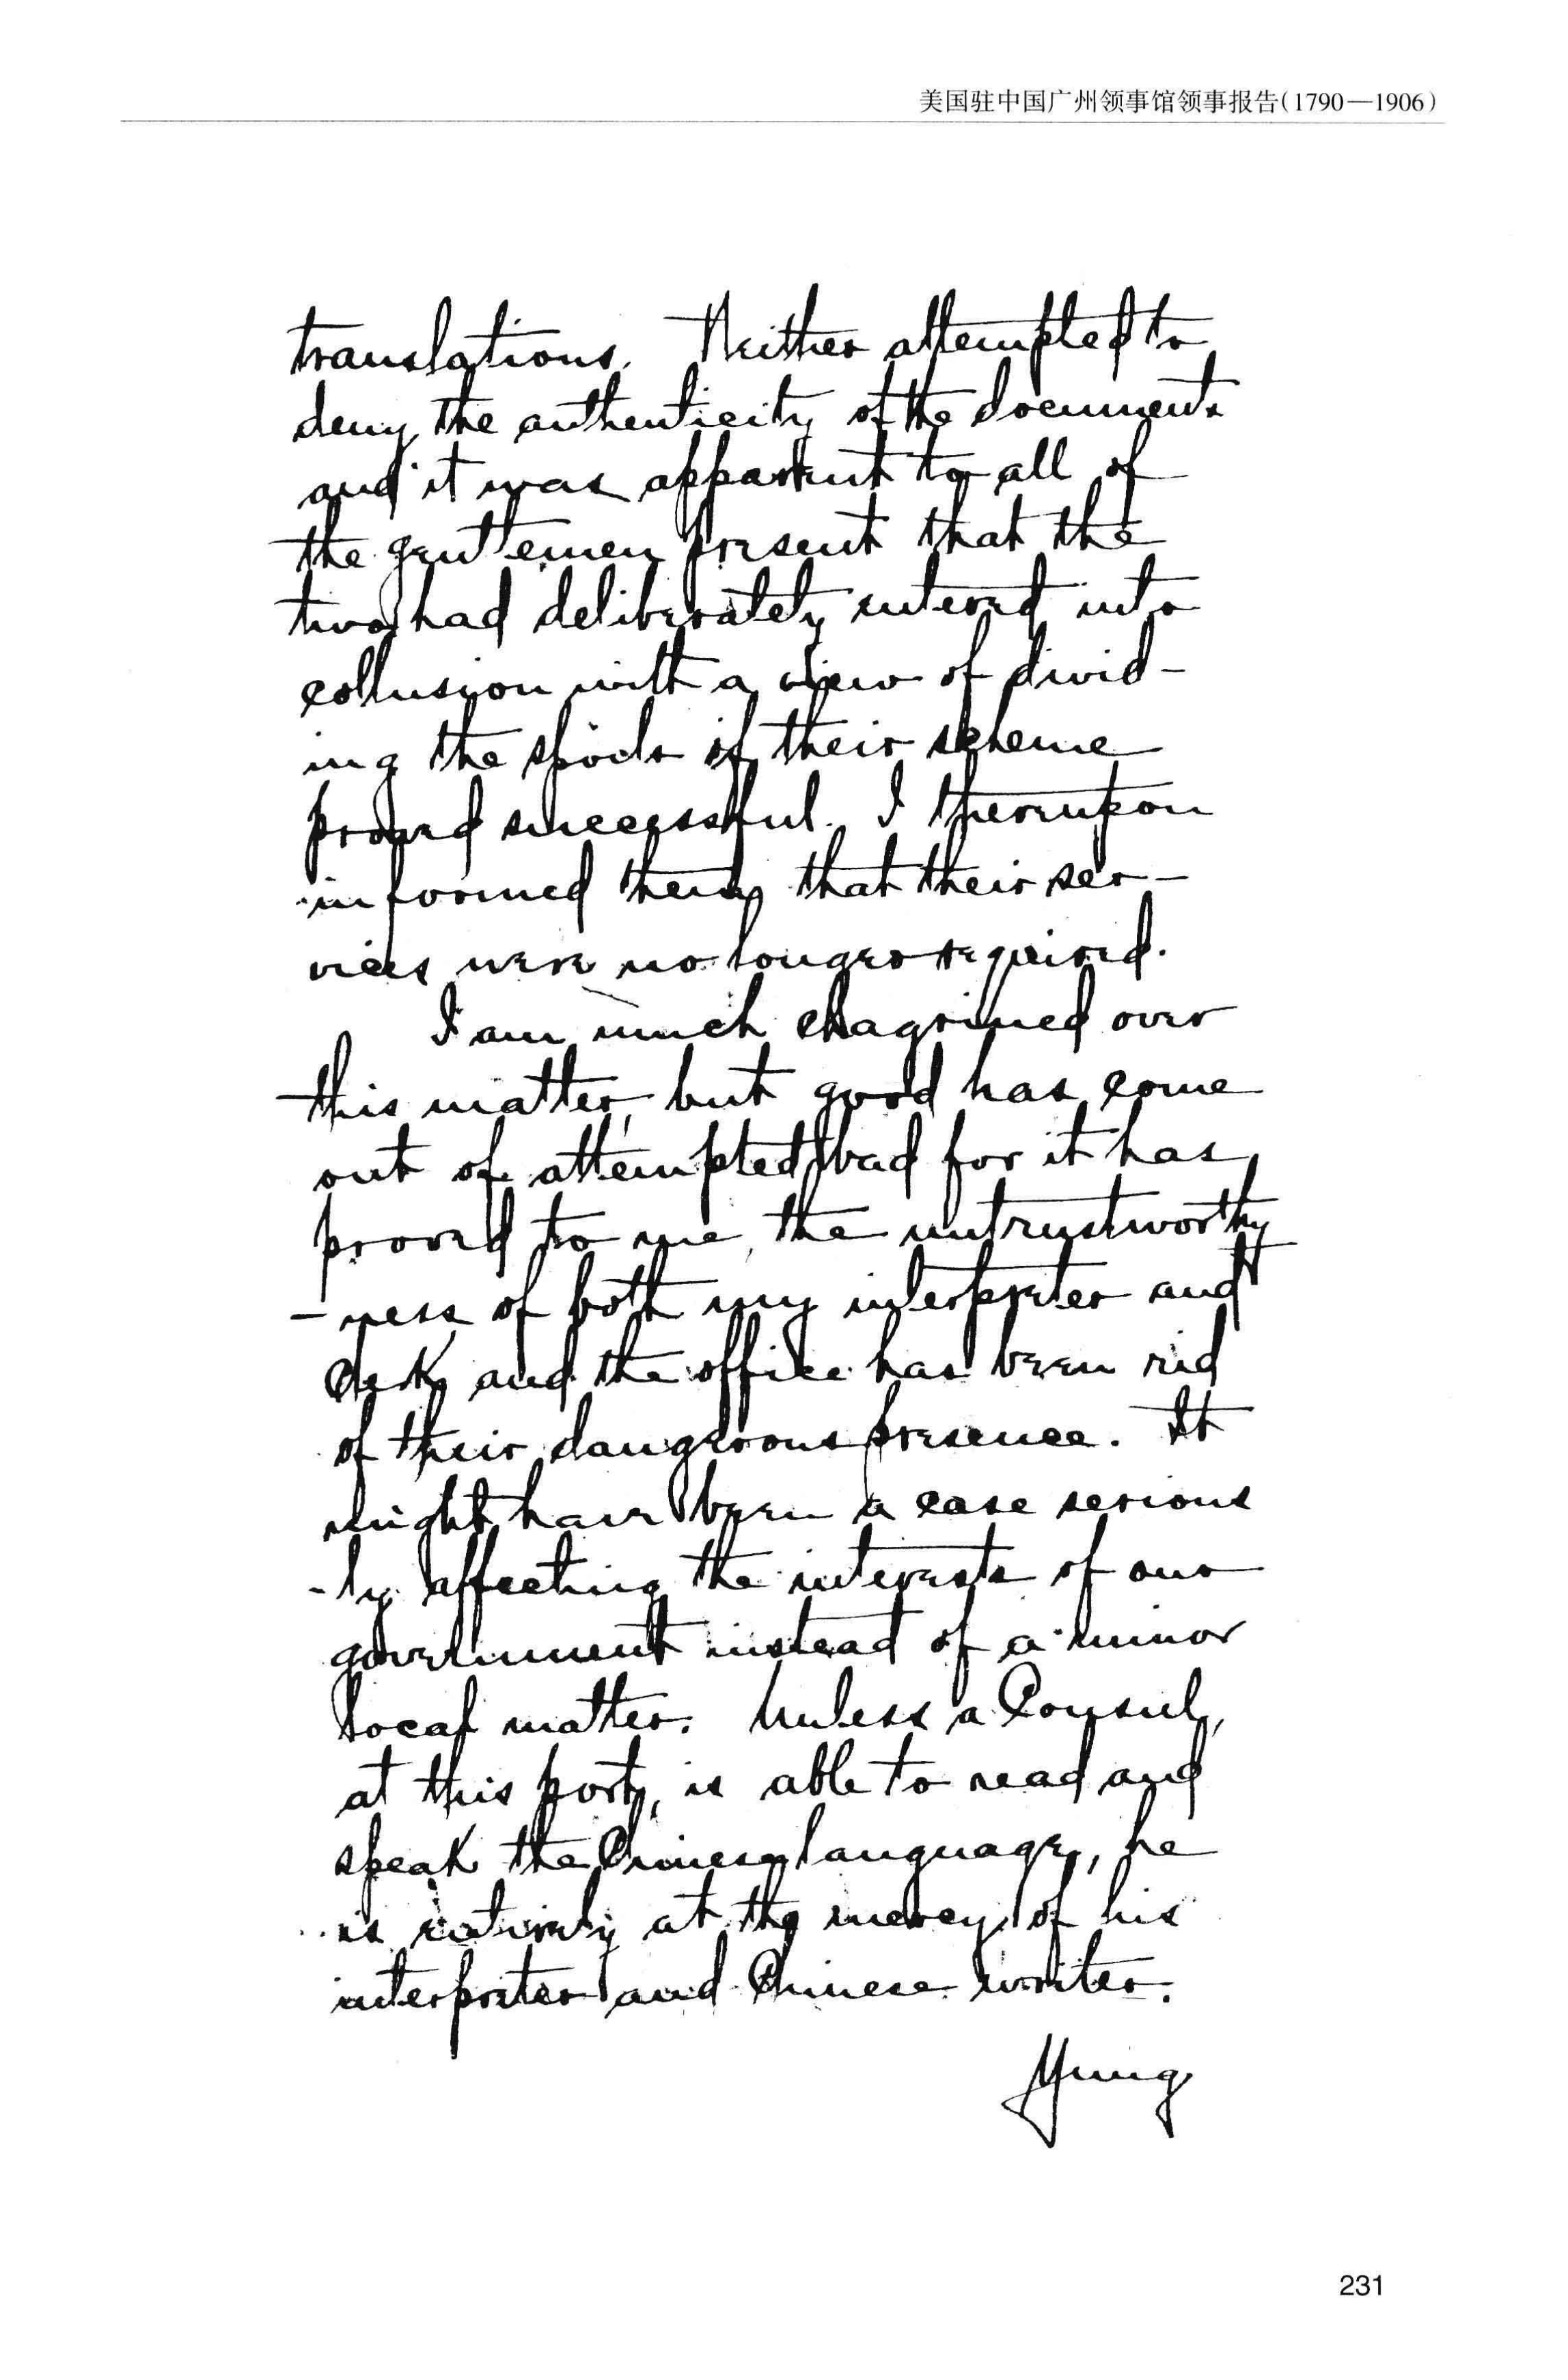 美国驻中国广州领事馆领事报告(1790—1906)
translations. Neither attempted to
deny the authenticity of the documents
and it was apparent to all of
the gentlemen present that the
two had deliberately entered into
collusion with a view of divid-
ing the spoils if their scheme
proved successful. I thereupon
informed them that their ser-
vices were no longer required.
I am much chagrined over
this matter, but good has come
out of attempted bad for it has
proved to me, the untrustworthy
-ness of both my interpreter and
clerk, and the office has been rid
of their dangerous presence. It
might have been a case serious
-ly affecting the interests of our
government instead of a minor
local matter. Unless a Consul,
at this port, is able to read and
speak the Chinese language, he
is entirely at the mercy of his
interpreter and Chinese writer.
Yung
231